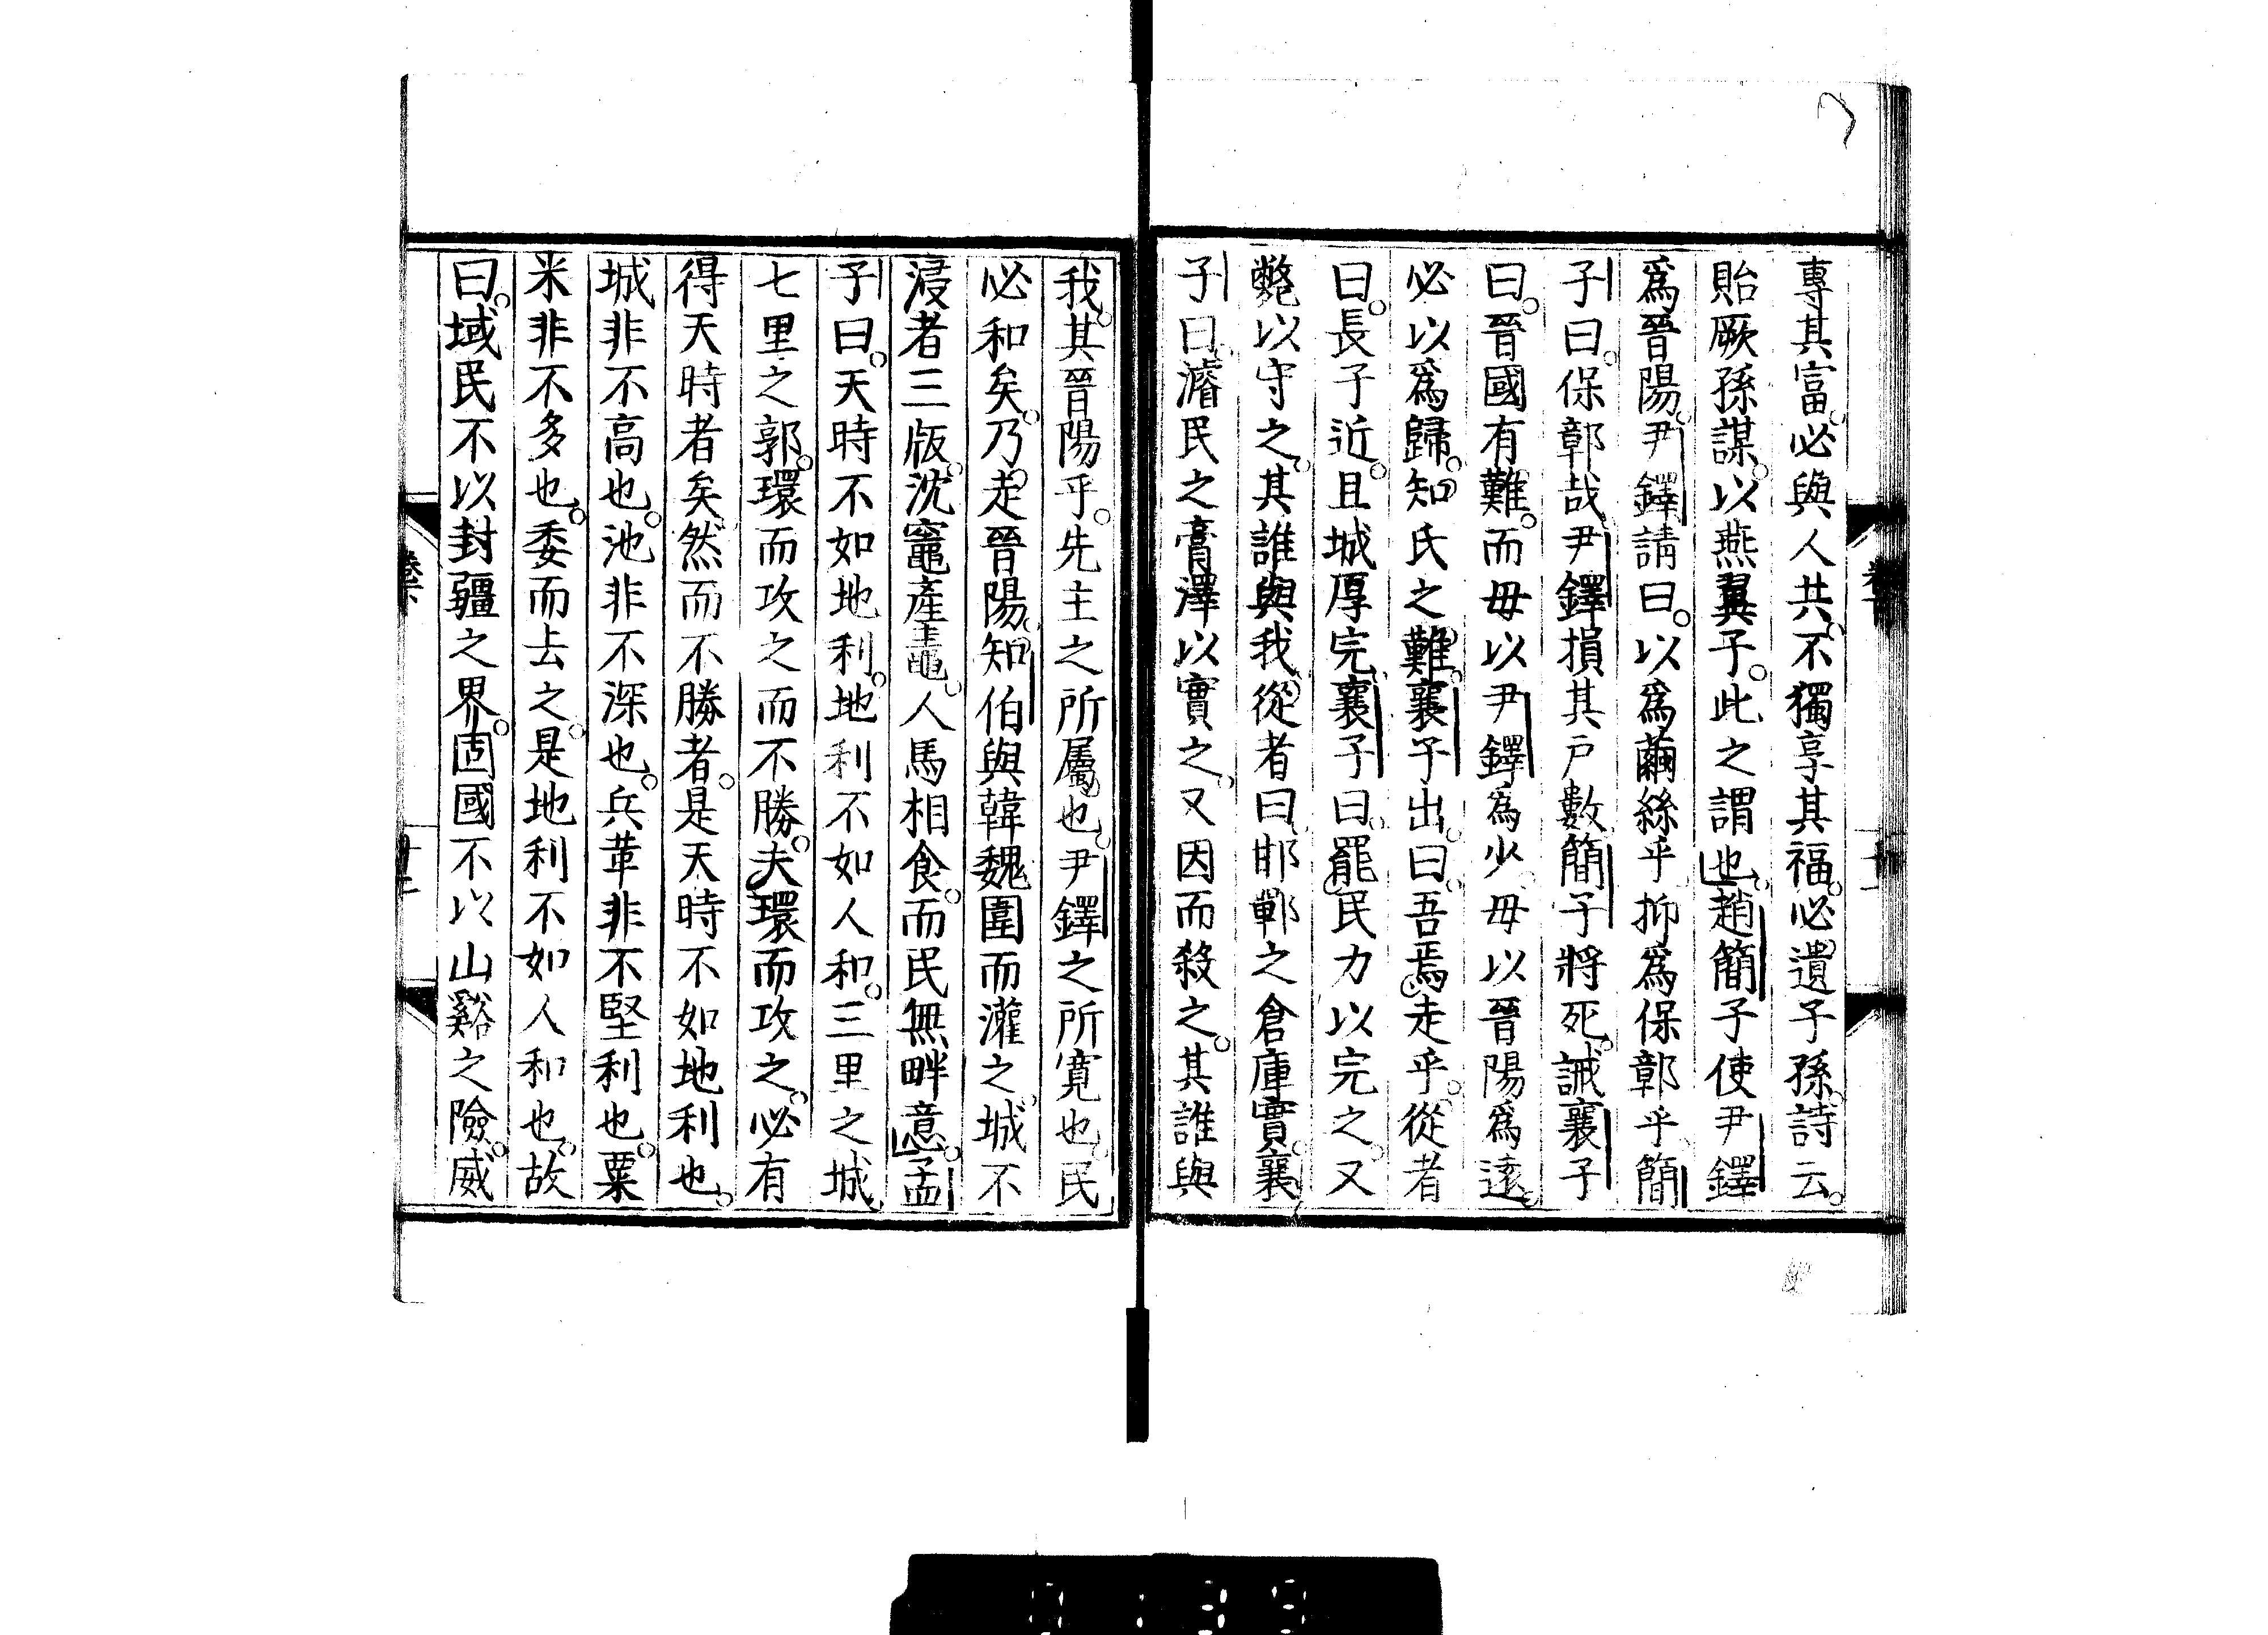 專其富必與人共不獨享其福必遺子孫詩云
貽厥孫謀以燕翼子此之謂也趙簡子使尹鐸
爲晉陽尹鐸請曰以爲繭絲乎抑爲保鄣乎簡
子曰保鄣哉尹鐸損其戸數簡子將死誡襄子
曰晉國有難而毋以尹鐸爲少毋以晉陽爲遠
必以爲歸知氏之難襄子出曰吾焉走乎從者
曰長子近且城厚完襄子曰罷民力以完之又
斃以守之其誰與我從者曰邯鄲之倉庫實襄
子曰濬民之膏澤以實之又因而殺之其誰與
我其晉陽乎先主之所屬也尹鐸之所寛也民
必和矣乃走晉陽知伯與韓魏圍而灌之城不
浸者三版沈竈產鼃人馬相食而民無畔意孟
子曰天時不如地利地利不如人和三里之城
七里之郭環而攻之而不勝夫環而攻之必有
得天時者矣然而不勝者是天時不如地利也
城非不高也池非不深也兵革非不堅利也粟
米非不多也委而去之是地利不如人和也故
曰域民不以封疆之界固國不以山谿之險威